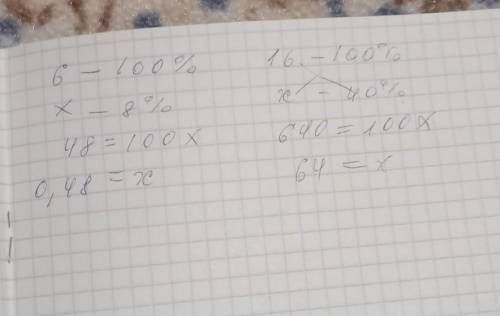 6 — 100%
x — 8%
48 = 100x
0,48 = x
16 — 100%
x — 40%
640 = 100x
64 = x